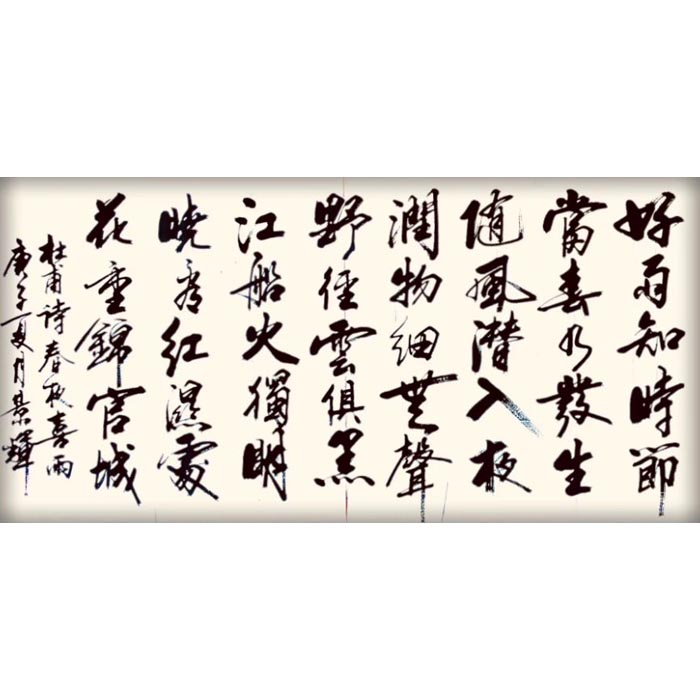 好雨知時節
當春乃發生
随風潜入夜
潤物細無聲
野徑雲俱黑
江船火獨明
曉看紅濕處
花重錦官城
杜甫詩春夜喜雨
庚子夏月景輝